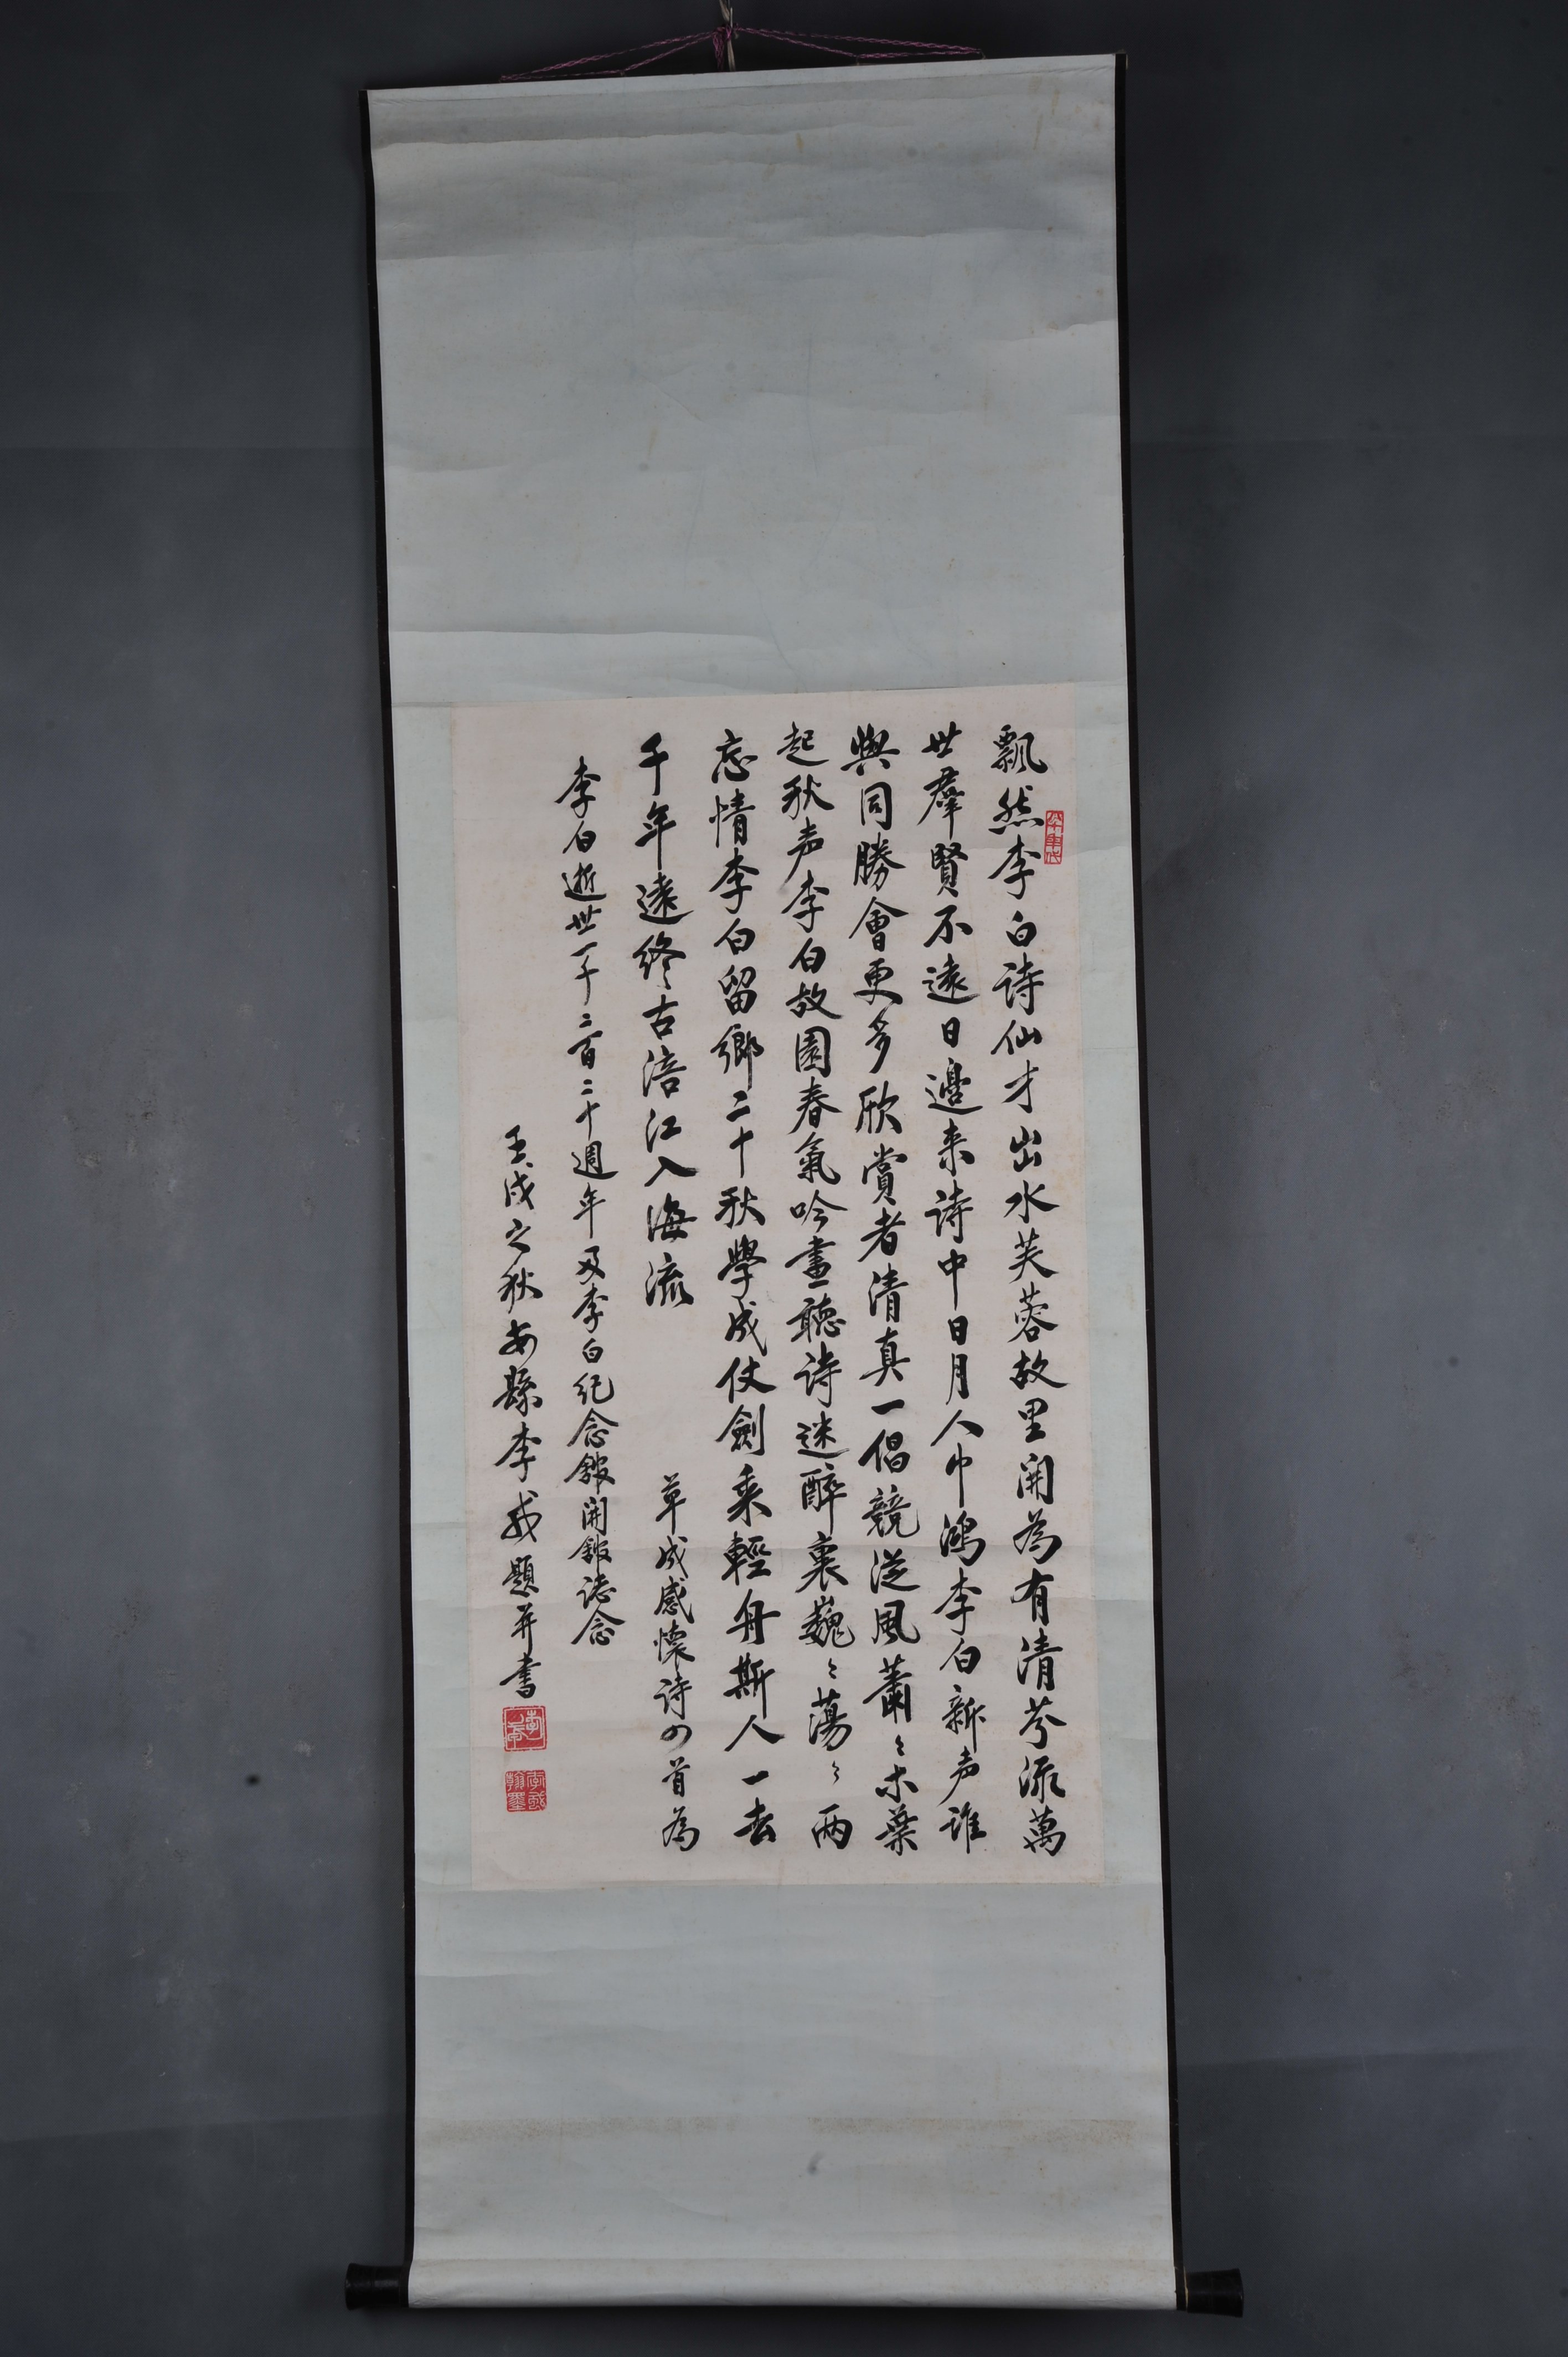 飄然李白詩仙才出水芙蓉故里開為有清芬流萬
世羣賢不遠日邊来詩中日月人中鴻李白新声誰
與同勝會更多欣賞者清真一倡競從風蕭〻木葉
起秋声李白故園春氣吟畫聽詩迷醉裏巍〻蕩〻兩
忘情李白留鄉二十秋學成仗劍乘輕舟斯人一去
千年遠終古涪江入海流
草成感懷詩四首為
李白逝世一千二百二十週年及李白紀念館開館誌念
壬戌之秋安縣李成題并書